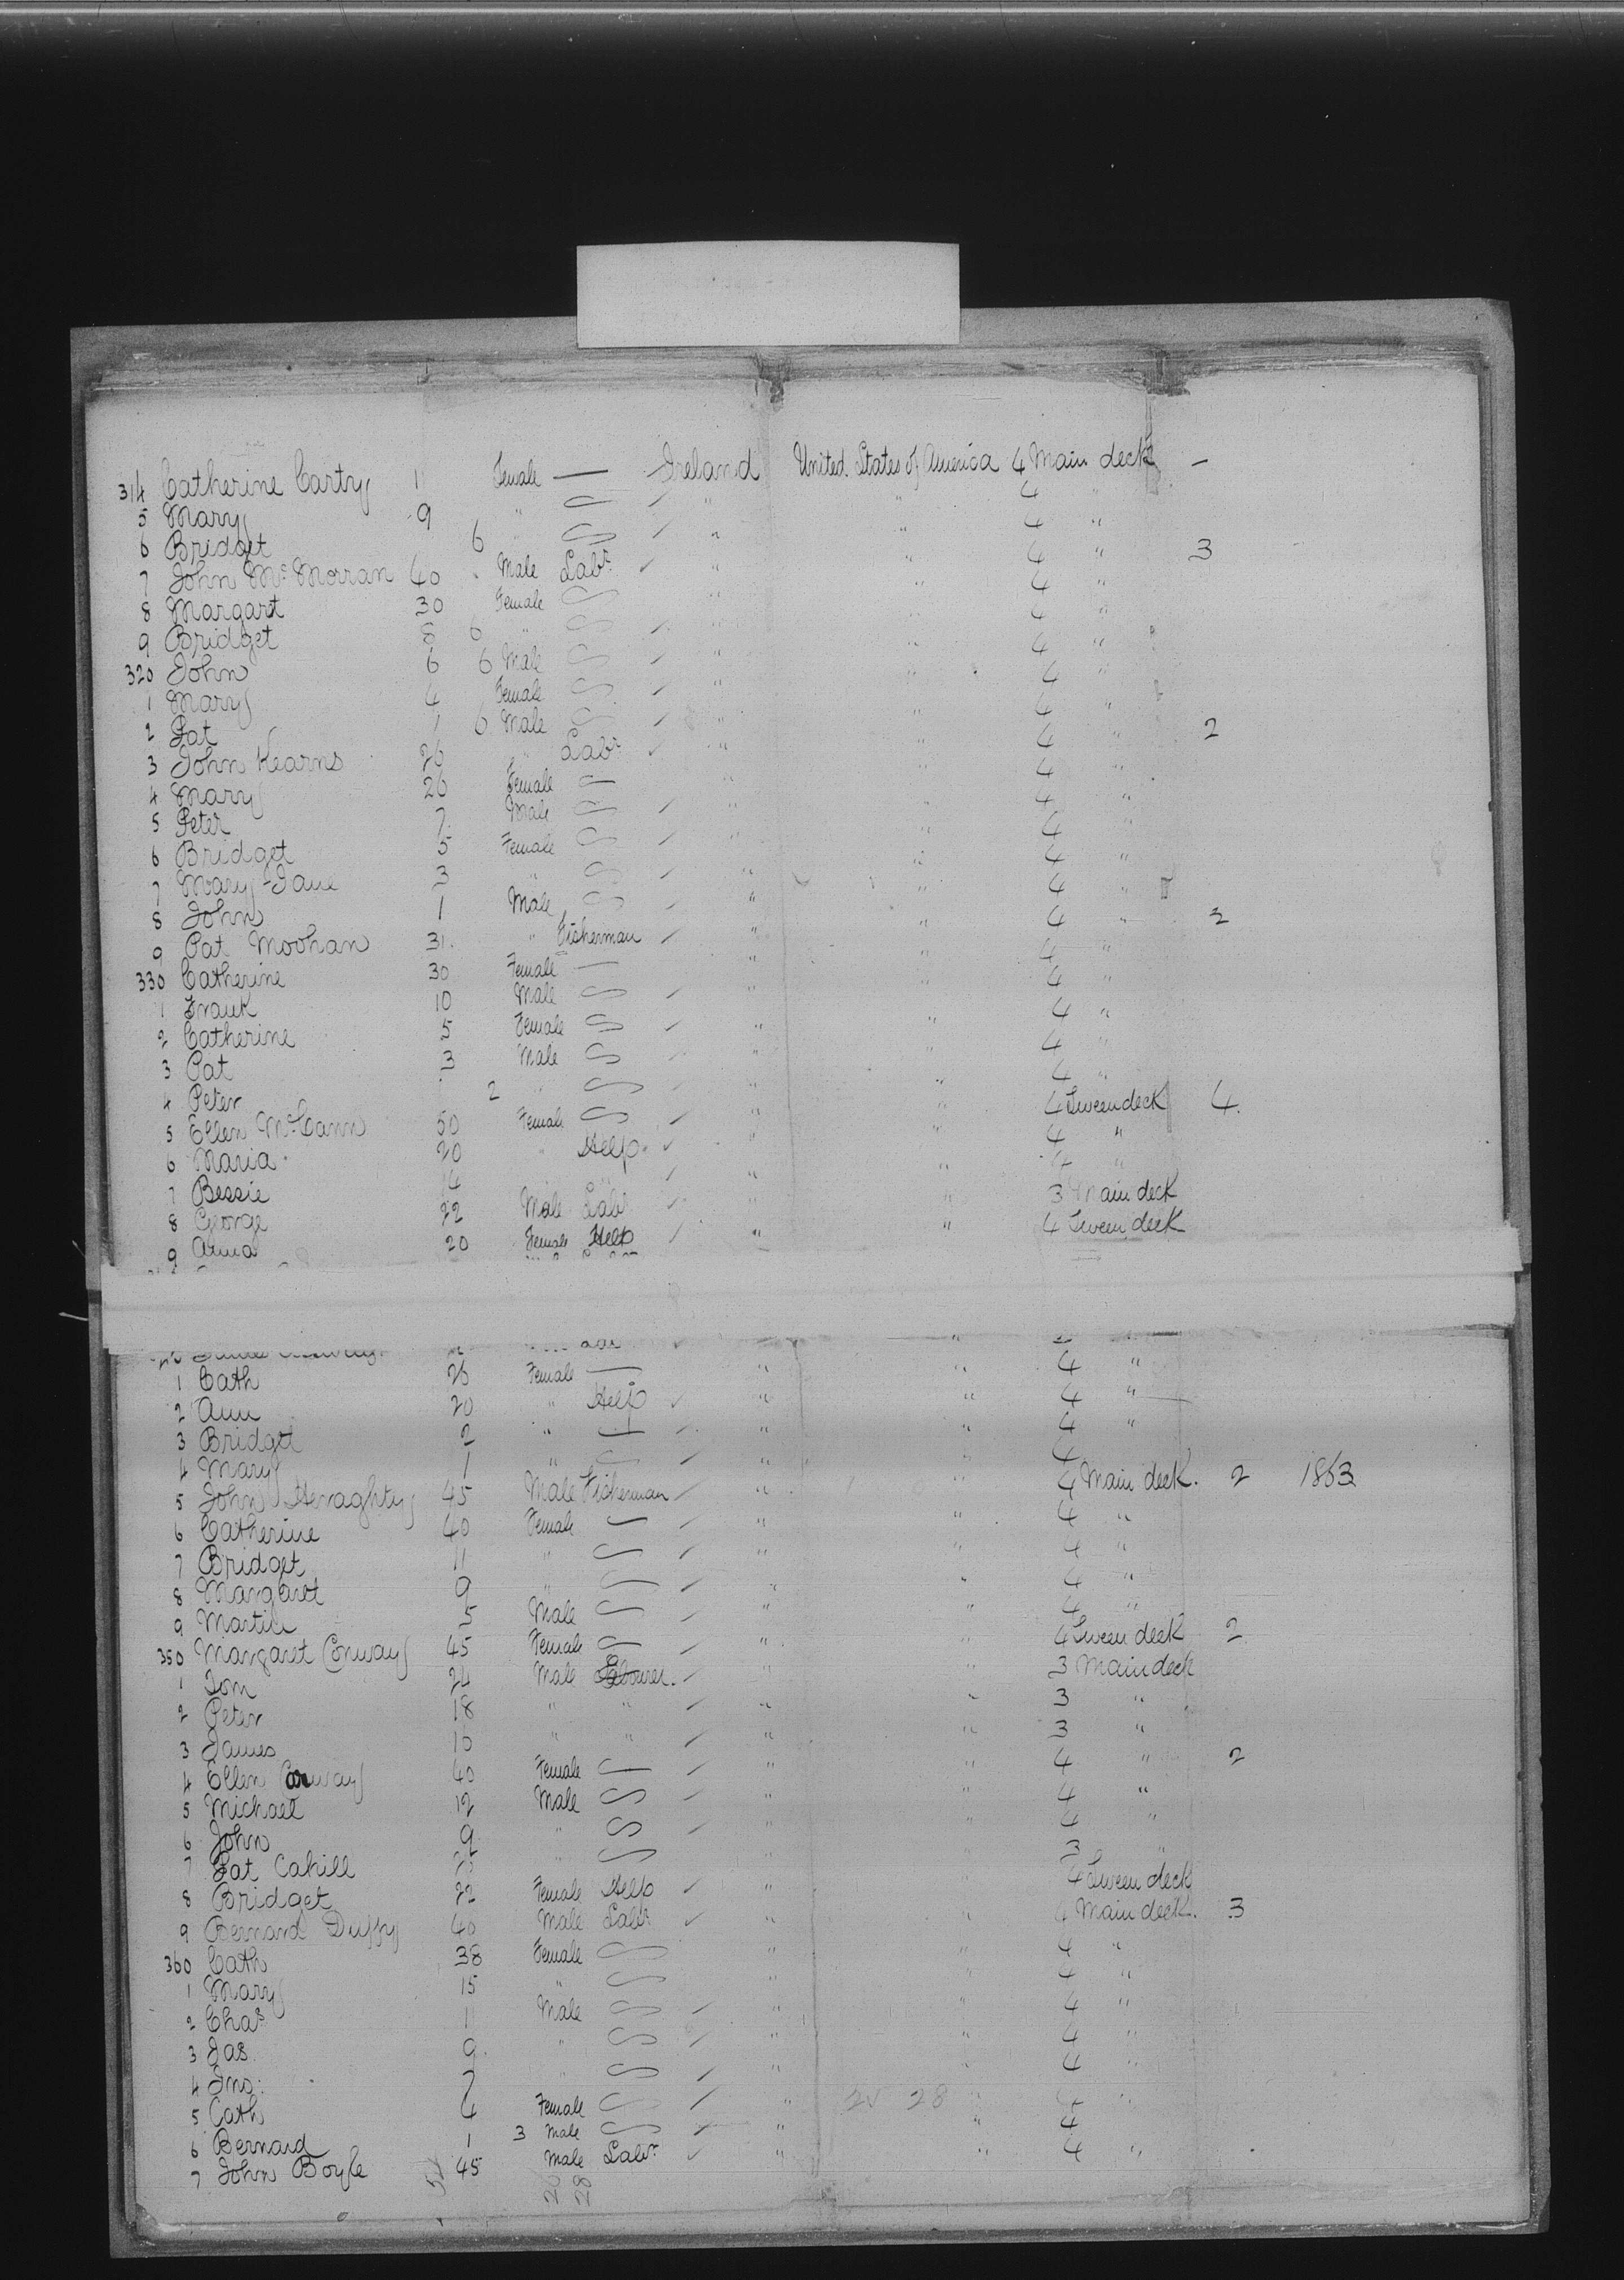 314 Catherine Carty 11 Female — Ireland United States of America 4 Main deck —
5 Mary 9 " " " 4 "
6 Bridget 6 " " 4 "
7 John McMorran 40 Male Labr " " 4 " 3
8 Margaret 30 Female " " 4 "
9 Bridget 8 6 " " " 4 "
320 John 6 6 Male " " 4 "
1 Mary 4 Female " " 4 "
2 Pat 1 6 Male " " 4 "
3 John Kearns 26 " Labr " " 4 " 2
4 Mary 26 Female " " 4 "
5 Peter 7 Male " " 4 "
6 Bridget 5 Female " " 4 "
7 Mary Jane 3 " " " 4 "
8 John 1 Male " " 4 "
9 Pat Moohan 31 " Fisherman " " 4 " 3
330 Catherine 30 Female — " " 4 "
1 Frank 10 Male " " 4 "
2 Catherine 5 Female " " 4 "
3 Pat 3 Male " " 4 "
4 Peter 2 " " " 4 "
5 Ellen McCann 50 Female " " 4 Tween deck 4
6 Maria 20 " Help " " 4 "
7 Bessie 14 " " " 4 "
8 George 22 Male Labr " " 3 Main deck
9 Anna 20 Female Help " " 4 Tween deck
1 Cath 26 Female — " " 4 "
2 Ann 20 " Help " " 4 "
3 Bridget 2 " " " 4 "
4 Mary 1 " " " 4
5 John Heraghty 45 Male Fisherman " " 4 Main deck. 2 1863
6 Catherine 40 Female " " 4 "
7 Bridget 11 " " " 4 "
8 Margaret 9 " " " 4 "
9 Martin 5 Male " " 4 "
350 Margaret Conway 45 Female " " 4 Tween deck 2
1 Tom 24 Male Labourer. " " 3 Main deck
2 Peter 18 " " " " 3 "
3 James 16 " " " " 3 "
4 Ellen Conway 40 Female " " 4 " 2
5 Michael 12 Male " " 4 "
6 John 9 " " " 4 "
7 Pat Cahill " " " 3 "
8 Bridget 22 Female Help " " 4 Tween deck
9 Bernard Duffy 40 Male Labr " " 4 Main deck. 3
360 Cath 38 Female " " 4 "
1 Mary 15 " " " 4 "
2 Chas 11 Male " " 4 "
3 Jas. 9 " " " 4 "
4 Jno. 7 " " " 4 "
5 Cath 4 Female " 28 " 4 "
6 Bernard 1 3 Male " " 4
7 John Boyle 45 Male Labr " " 4 "
28